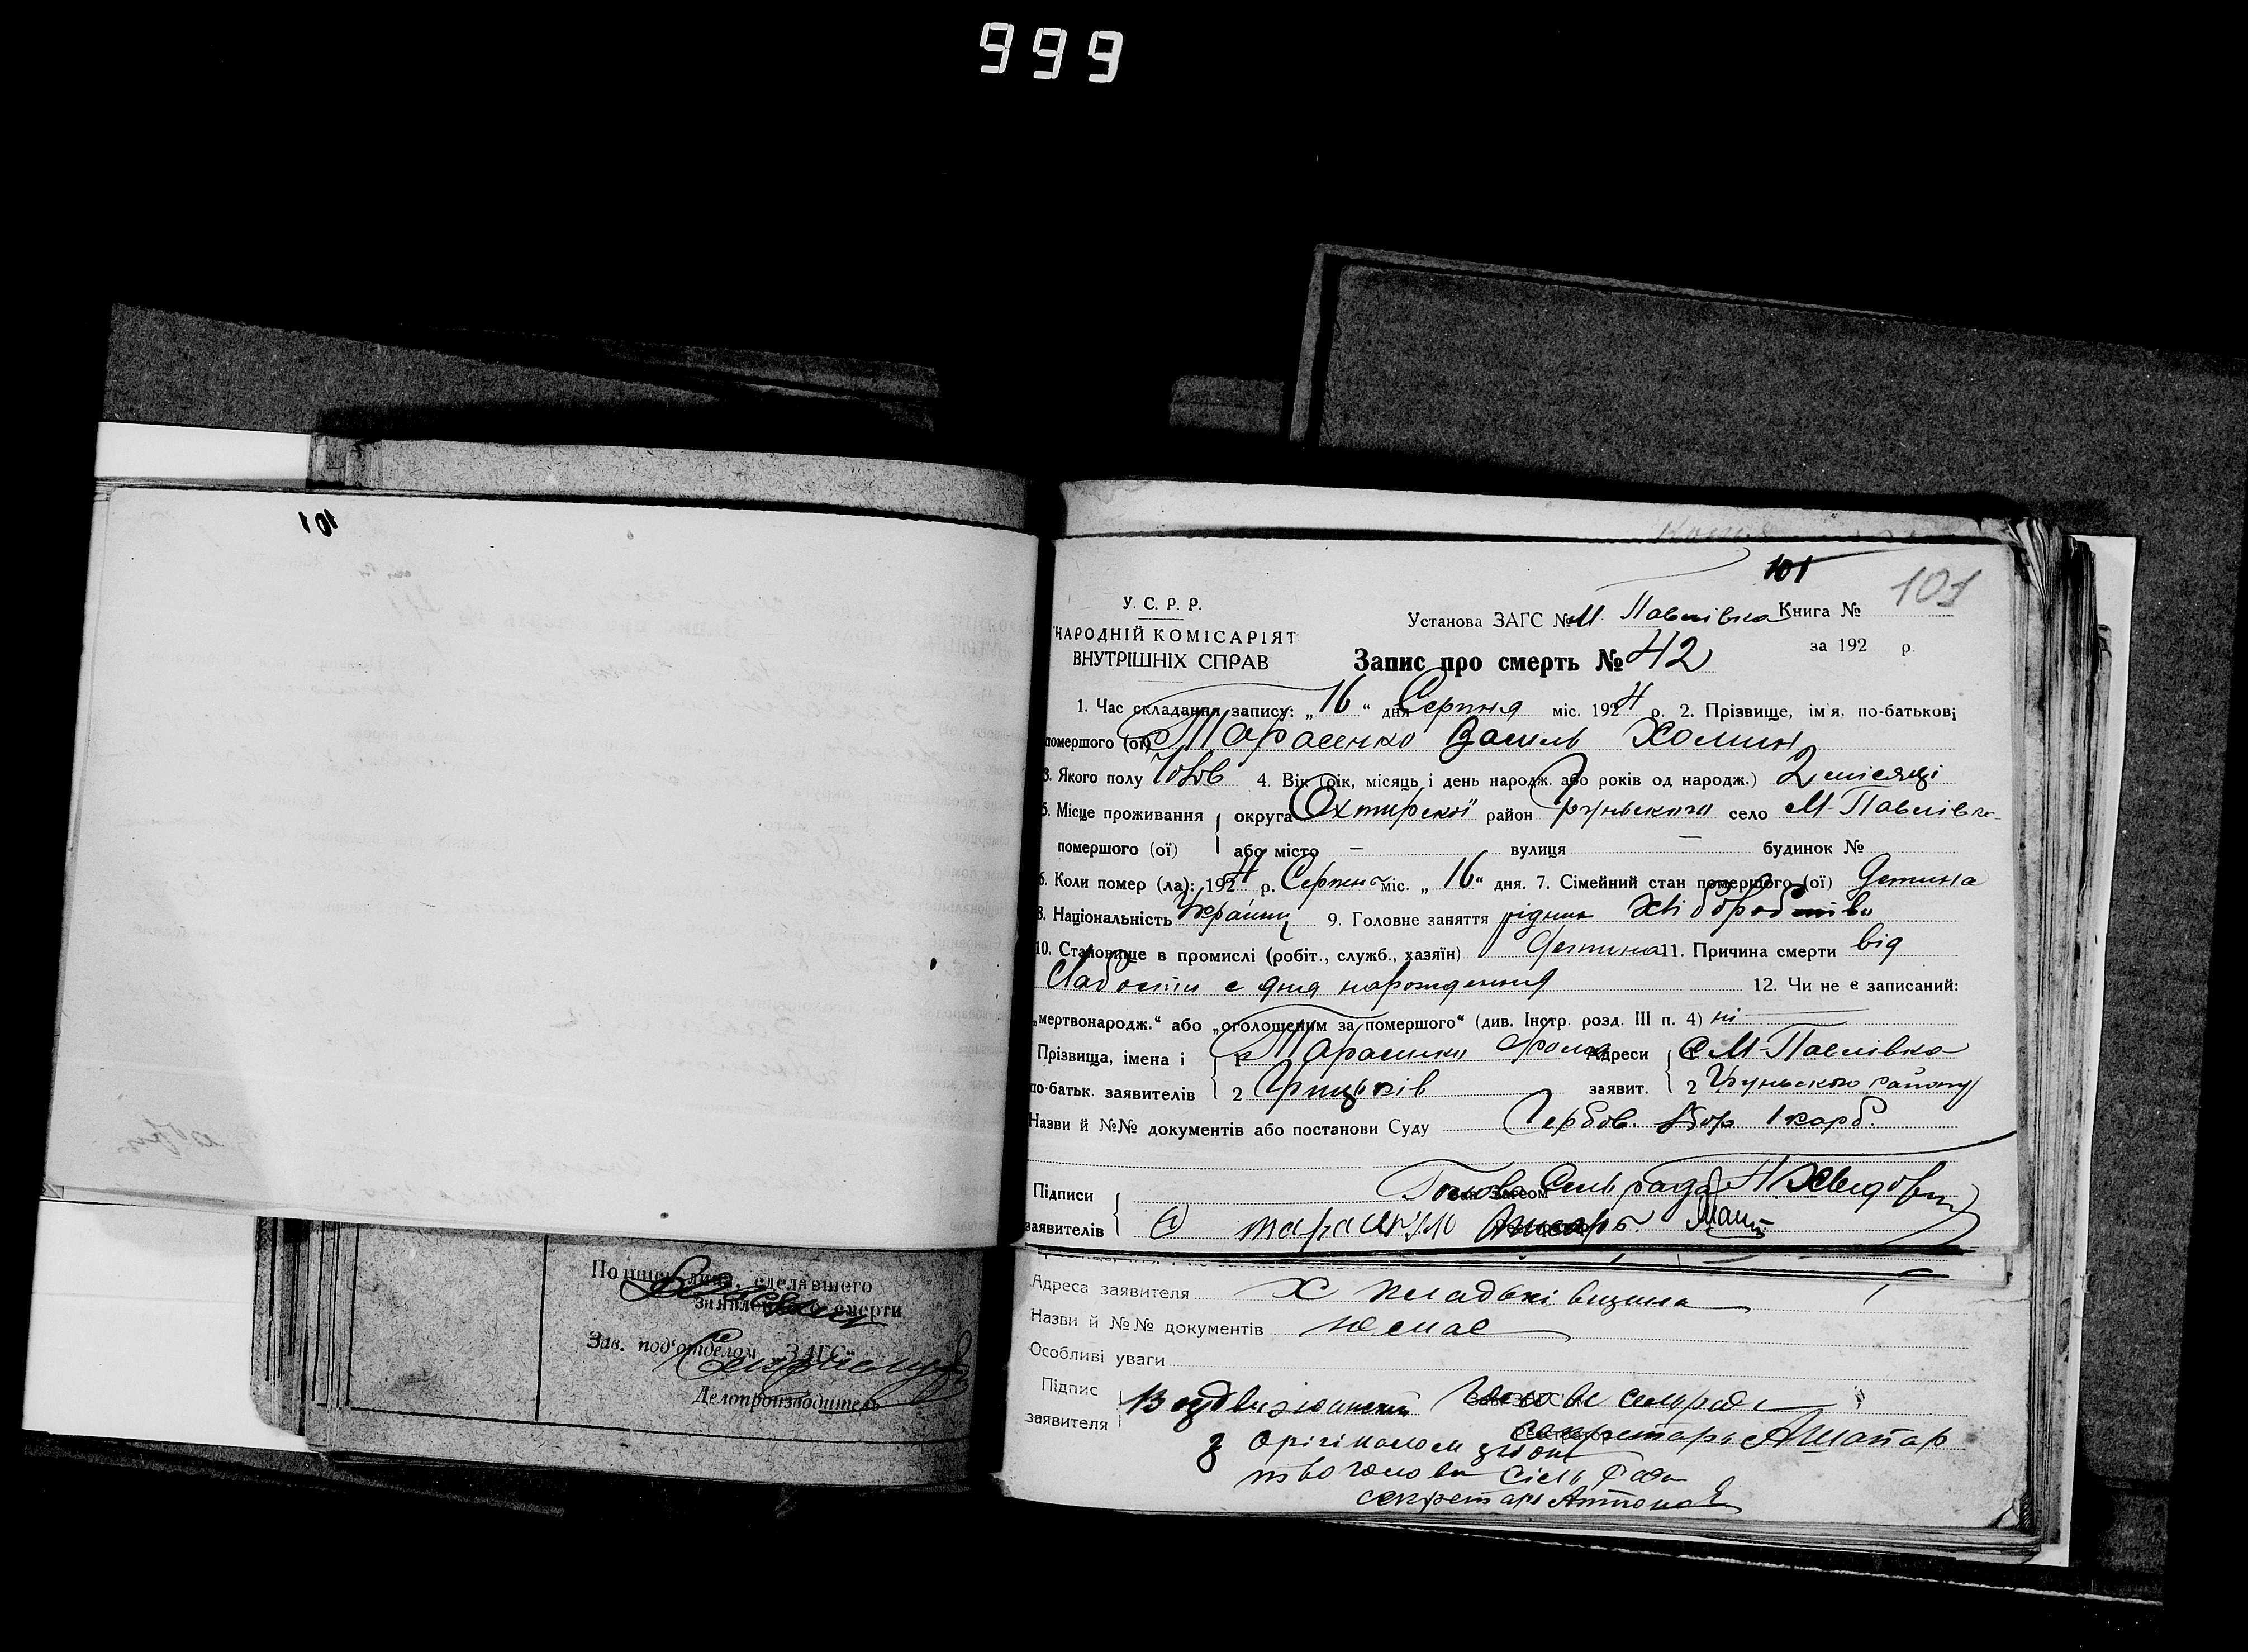 999
101
101
101
У. С. Р. Р.
НАРОДНІЙ КОМІСАРІЯТ
ВНУТРІШНІХ СПРАВ
Установа ЗАГС № М Павлівка Книга №
Запис про смерть № 42
за 192 р.
1. Час складания запису: „16“ дня Серпня міс. 1924 р. 2. Прізвище, ім'я, по-батькові
помершого (ої) Тарасенко Василь Хомин
3. Якого полу Чолов 4. Вік (рік, місяць і день народж. або років од народж.) 2 місяці
5. Місце проживання округа Охтирської район Грунського село М-Павлівка
помершого (ої) або місто — вулиця — будинок №
6. Коли помер (ла): 1924 р. Серпня міс. „16“ дня. 7. Сімейний стан помершого (ої) Детина
8. Національність Україн 9. Головне заняття рідних Хліборобство
10. Становище в промислі (робіт., служб., хазяїн) Детина 11. Причина смерти від
слабости с дня нарождения 12. Чи не є записаний:
„мертвонародж.“ або „оголошеним за помершого“ (див. Інстр. розд. III п. 4) ні
Прізвища, імена і 1 Тарасенко Хома Адреси С М-Павлівка
по-батьк. заявителів 2 Грицьків заявит. 2 Грунського району
Назви й №№ документів або постанови Суду Гербов. збор 1 карб.
Підписи Голова Сель ради
заявителів Тарасенко Писарь
Адреса заявителя Х
Назви й №№ документів немає
Особливі уваги
Підпис
заявителя голови сельради
секретарь
З орігіналом згідно
голови Сіль Ради
секретарь
Подпись лица, сделавшего
заявление о смерти
Зав. под'отделом „ЗАГС“
Делопроизводитель